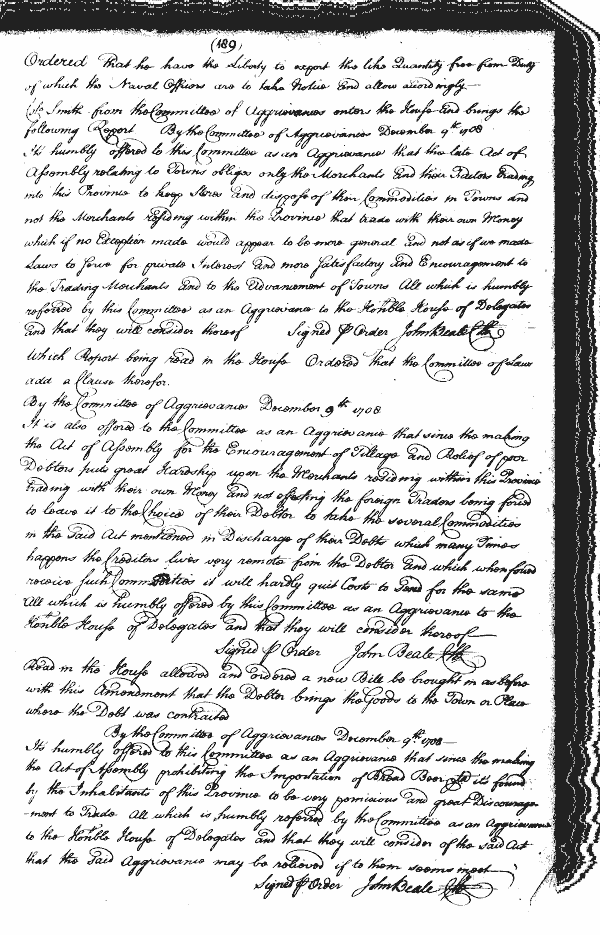 (189)
Ordered That he have the Liberty to export the like Quantity free from Duty
of which the Naval Officers are to take Notice and allow accordingly
Smith from the Committee of Aggrievances enters the House and brings the
following Report By the Committee of Aggrievances December 9th 1708
Its humbly offered to this Committee as an Aggrievance that the late Act of
Assembly relating to Towns obliges only the Merchants and their Factors trading
into this Province to keep Stores and dispose of their Commodities in Towns and
not the Merchants residing within the Province that trade with their own Money
which if no Exception made would appear to be more general and not as if we made
Laws to serve for private Interest and more satisfactory and Encouragement to
the Trading Merchants and to the Advancement of Towns All which is humbly
referred by this Committee as an Aggrievance to the Honble House of Delegates
and that they will consider thereof Signed P Order John Beale Clk
Which Report being read in the House Ordered that the Committee of Laws
add a Clause therefor.
By the Committee of Aggrievances December 9th 1708
It is also offered to the Committee as an Aggrievance that since the making
the Act of Assembly for the Encouragement of Tillage and Relief of poor
Debtors puts great Hardship upon the Merchants residing within this Province
trading with their own Money and not affecting the foreign Traders being forced
to leave it to the Choice of their Debtor to take the several Commodities
in the said Act mentioned in Discharge of their Debts which many Times
happens the Creditors lives very remote from the Debtor and which when forced
receive such Commodities it will hardly quit Costs to send for the same
All which is humbly offered by this Committee as an Aggrievance to the
Honble House of Delegates and that they will consider thereof
Signed P Order John Beale Clk
Read in the House allowed and ordered a new Bill be brought in as before
with this Amendment that the Debtor brings the Goods to the Town or Place
where the Debt was contracted
By the Committee of Aggrievances December 9th 1708
Its humbly offered to this Committee as an Aggrievance that since the making
the Act of Assembly prohibiting the Importation of Bread Beer &c its found
by the Inhabitants of this Province to be very pernicious and great Discourage
-ment to Trade All which is humbly referred by the Committee as an Aggrievance
to the Honble House of Delegates and that they will consider of the said Act
that the said Aggrievance may be relieved if to them seems meet
Signed P Order John Beale Clk